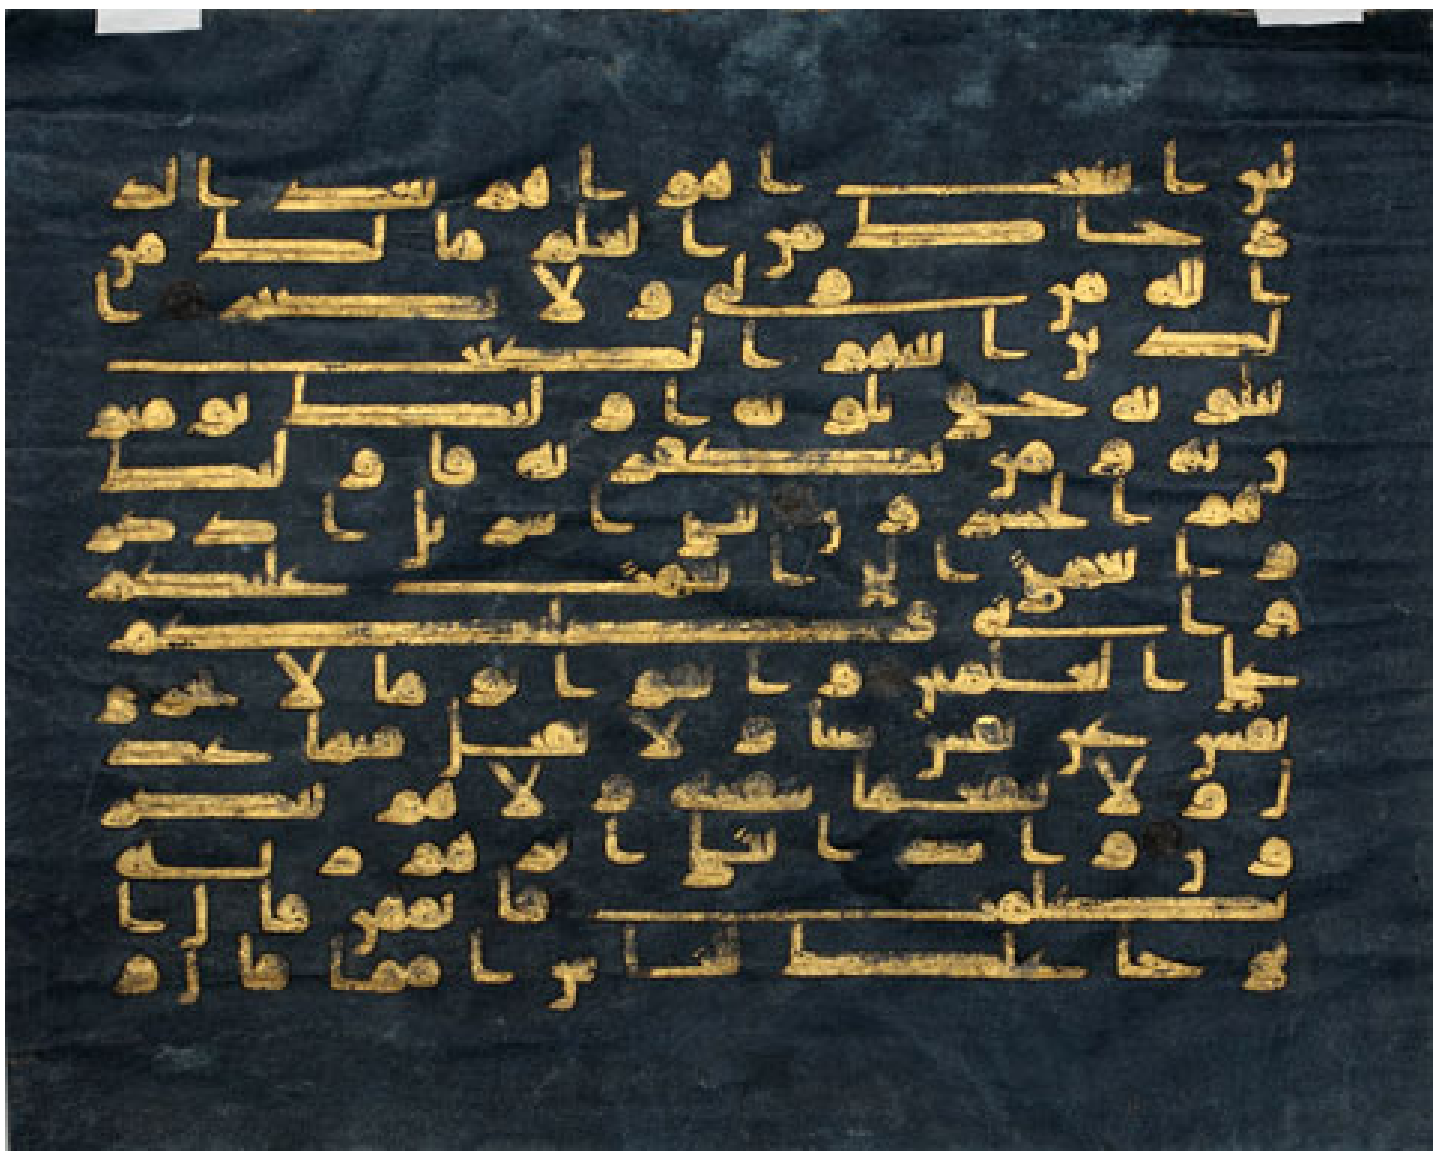 ين اتبعت اهواهم بعد الذ
ي جاك من العلم ما لك من
الله من ولي ولا نصير ا
لذين اتينهم الكتب
يتلونه حق تلوته اوليك يومنو
ن به ومن يكفر به فاوليك
هم الخسرون يبني اسريل اذكر
وا نعمتي التي انعمت عليكم
واني فضلتكم
على العلمين واتقوا يوما لا تجزي
نفس عن نفس شيا ولا يقبل منها عد
ل ولا تنفعها شفعة ولا هم ينصر
ون واذ ابتلى ابرهم ربه
بكلمت فاتمهن قال ا
ني جاعلك للناس اماما قال و